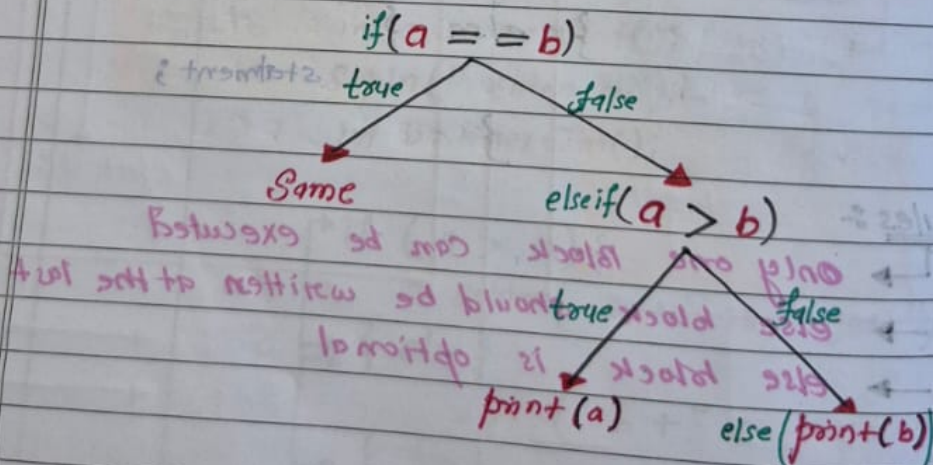 if(a = = b)
true
false
Same
else if(a > b)
true
false
print(a)
else(print(b)